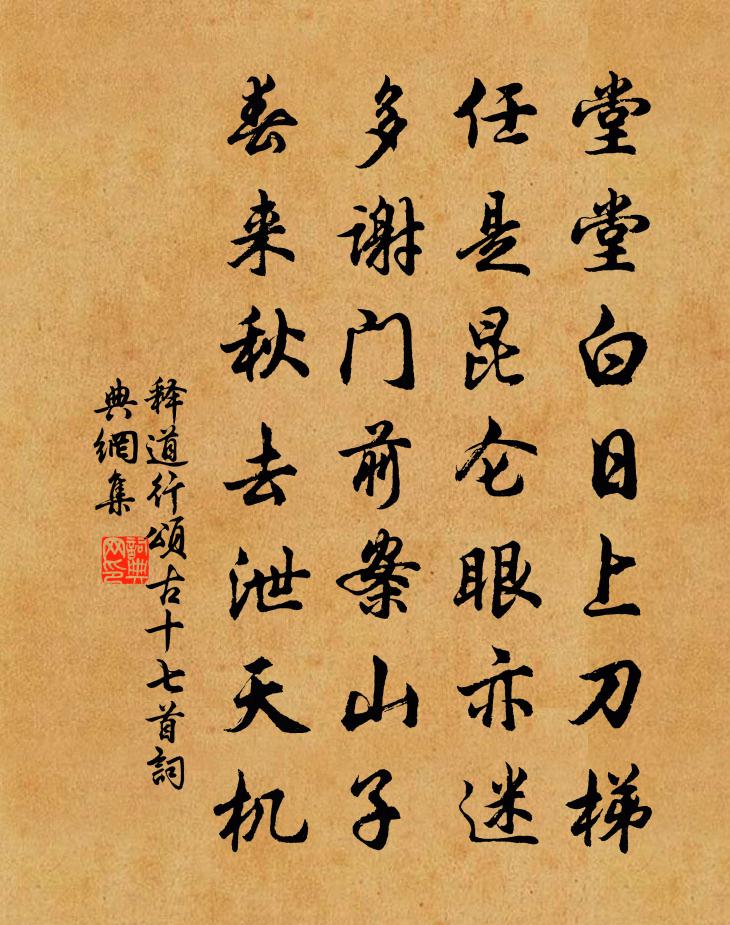 堂堂白日上刀梯
任是昆仑眼亦迷
多谢门前案山子
春来秋去泄天机
释道行颂古十七首詞
典網集
詞典
网印